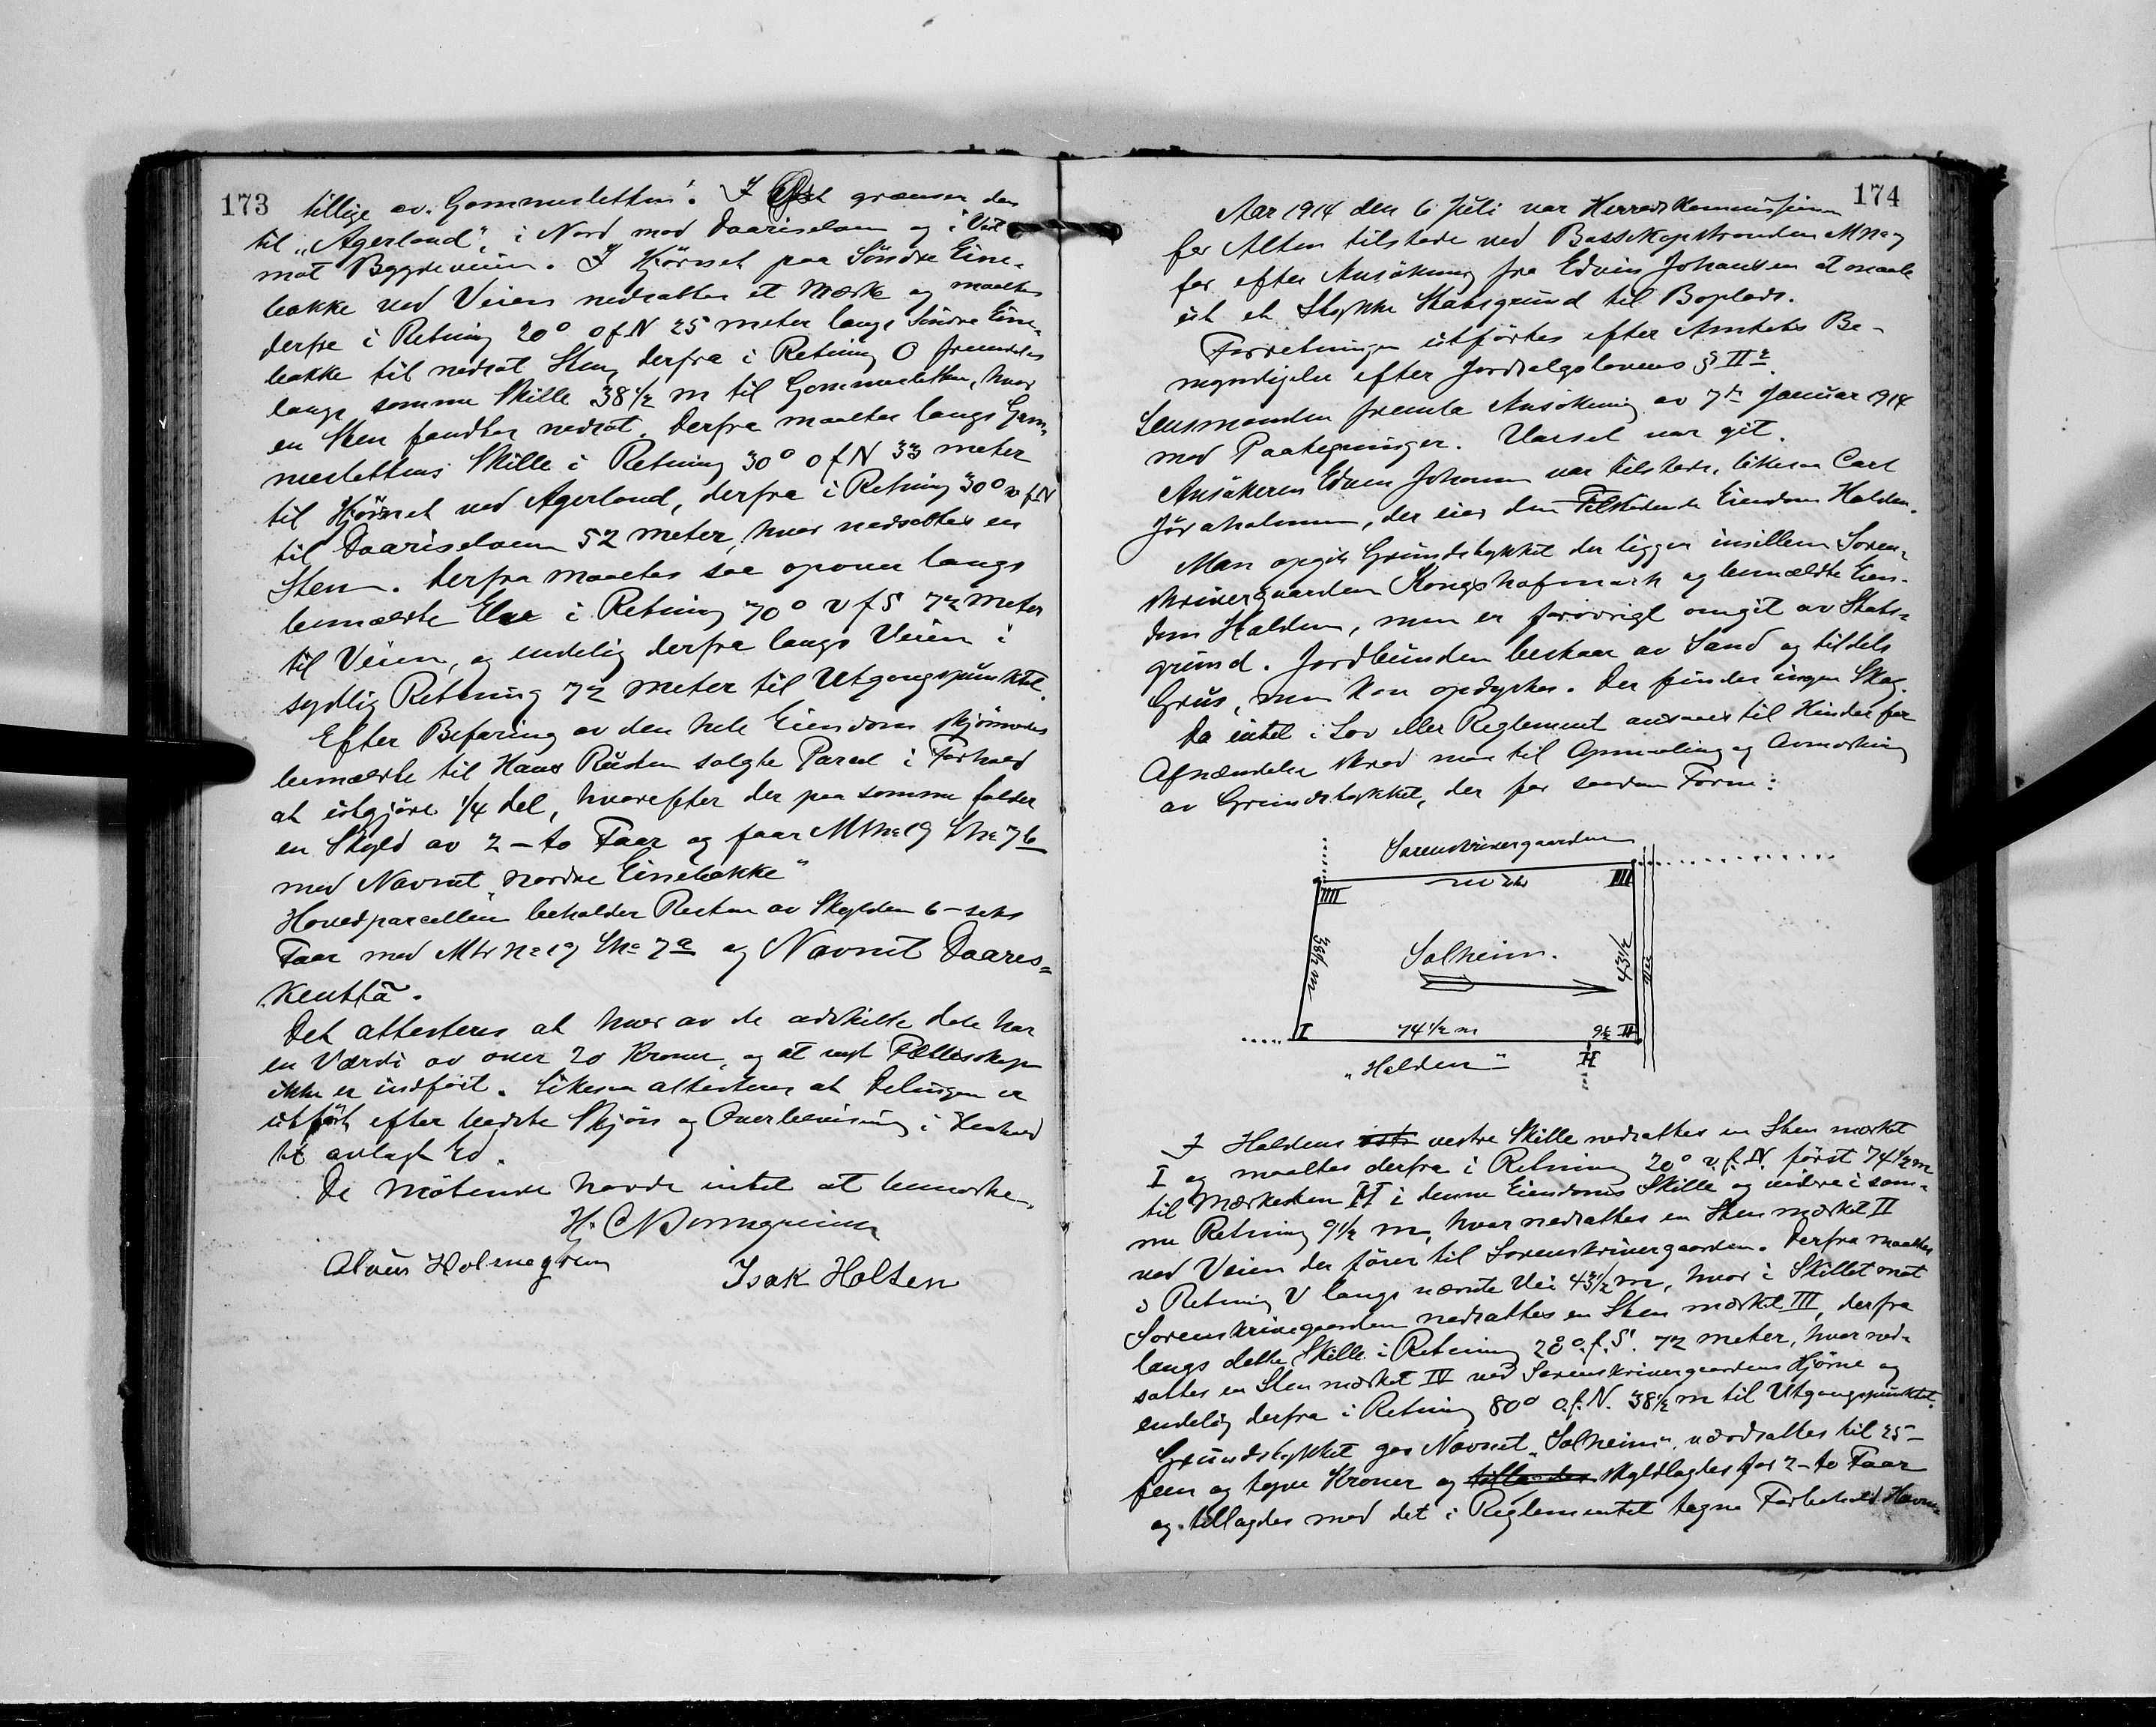 173
tillige av Gammeslettens. I Øst grænser den
til „Agerland", i Nord mod Daariselven og i Vest
mot Bygdeveien. I Hjørnet paa Söndre Eine-
bakke ved Veien nedsattes et Mærke og maaltes
derfra i Retning 20° o f N 25 meter langs Söndre Eine-
bakke til nedsat Sten, derfra i Retning O fremdeles
langs samme Skille 38½ m til Gammesletten, hvor
en Sten fandtes nedsat. Derfra maaltes langs Gam-
meslettens Skille i Retning 30° o f N 33 meter
til Hjörnet ved Agerland, derfra i Retning 30° v f N
til Daariselven 52 meter, hvor nedsattes en
Sten. Derfra maaltes saa opover langs
bemældte Elv i Retning 70° v f S 72 meter
til Veien, og endelig derfra langs Veien i
sydlig Retning 72 meter til Utgangspunktet.
Efter Befaring av den hele Eiendom skjönnedes
bemældte til Hans Rusten solgte Parcel i Forhold
at utgjöre 1/4 del, hvorefter der paa samme falder
en Skyld av 2 – to Faar og faar Mtr No 19 L No 7b
med Navnet „Nordre Einebakke"
Hovedparcellen beholder Resten av Skylden 6 – seks
Faar med Mtr No 19 L No 7a og Navnet Daares-
kenttä.
Det attesteres at hver av de adskilte dele har
en Værdi av over 20 Kroner, og at nyt Fællesskap
ikke er indført. Likesaa attesteres at Delingen er
utført efter bedste Skjön og Overbevisning i Henhold
til avlagt Ed.
De Mötende havde intet at bemerke.
H. C.
Holmegren
Isak Holten
174
Aar 1914 den 6 Juli var Herredskommissionen
for Alten tilstede ved Bossekopstranden
for efter Ansökning fra Edvin Johansen at maale
ut et Stykke Statsgrund til Boplads.
Forretningen utførtes efter Amtets Be-
myndigelse efter Jordsalgslovens § II
Lensmanden fremla Ansökning av 7de Januar 1914
med Paategninger. Varsel var git.
Ansökeren Edvin Johansen var tilstede, likesaa Carl
, der eier den Tilstødende Eiendom Halden.
Man opgik Grundstykket der ligger imellem Soren-
skrivergaarden Kongshofmark og bemældte Eien-
dom Halden, men er forövrigt omgit av Stats-
grund. Jordbunden bestaar av Sand og tildels
Grus, men kan opdyrkes. Der findes ingen Skog.
Da intet i Lov eller Reglement ansaaes til Hinder for
Afhændelse skred man til Opmaaling og Avmerkning
av Grundstykket, der faar saadan Form:
Sorenskrivergaarden
IIII
III
38½ m
Solheim.
43½
Vei
I
74½ m
9½
II
„Halden"
H
I Haldens vestre Skille nedsattes en Sten merket
I og maaltes derfra i Retning 20° v. f. N. först 74½ m
til Merkesten H i denne Eiendoms Skille og videre i sam-
me Retning 9½ m, hvor nedsattes en Sten merket II
ved Veien der fører til Sorenskrivergaarden. Derfra maaltes
i Retning V langs nævnte Vei 43½ m, hvor i Skillet mot
Sorenskrivergaarden nedsattes en Sten merket III, derfra
langs dette Skille i Retning 20° o. f. S. 72 meter, hvor ned-
sattes en Sten merket IV ved Sorenskrivergaardens Hjörne og
endelig derfra i Retning 80° o. f. N. 38½ m til Utgangspunktet.
Grundstykket gas Navnet „Solheim", værdsattes til 25 –
fem og tyve Kroner og tillagdes skyldlagdes for 2 – to Faar
og tillagdes med det i Reglementet tagne Forbehold Havne-